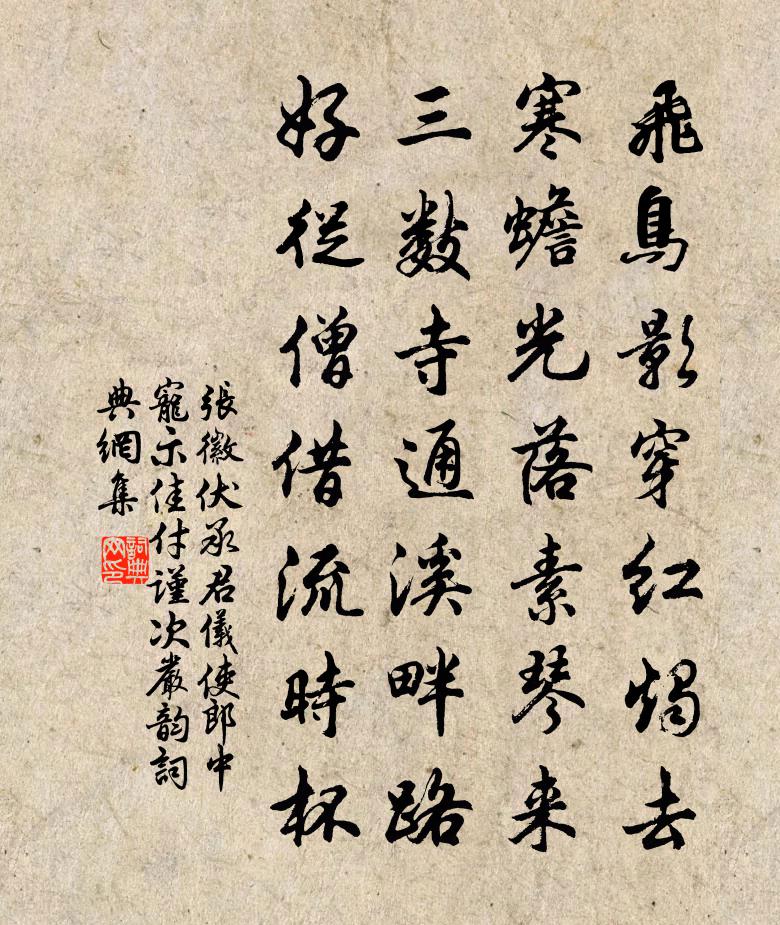 飛鳥影穿紅燭去
寒蟾光落素琴来
三數寺通溪畔路
好從僧借流時杯
張徽伏承君儀使郎中
寵示佳什謹次嚴韵詞
典網集
詞典網印